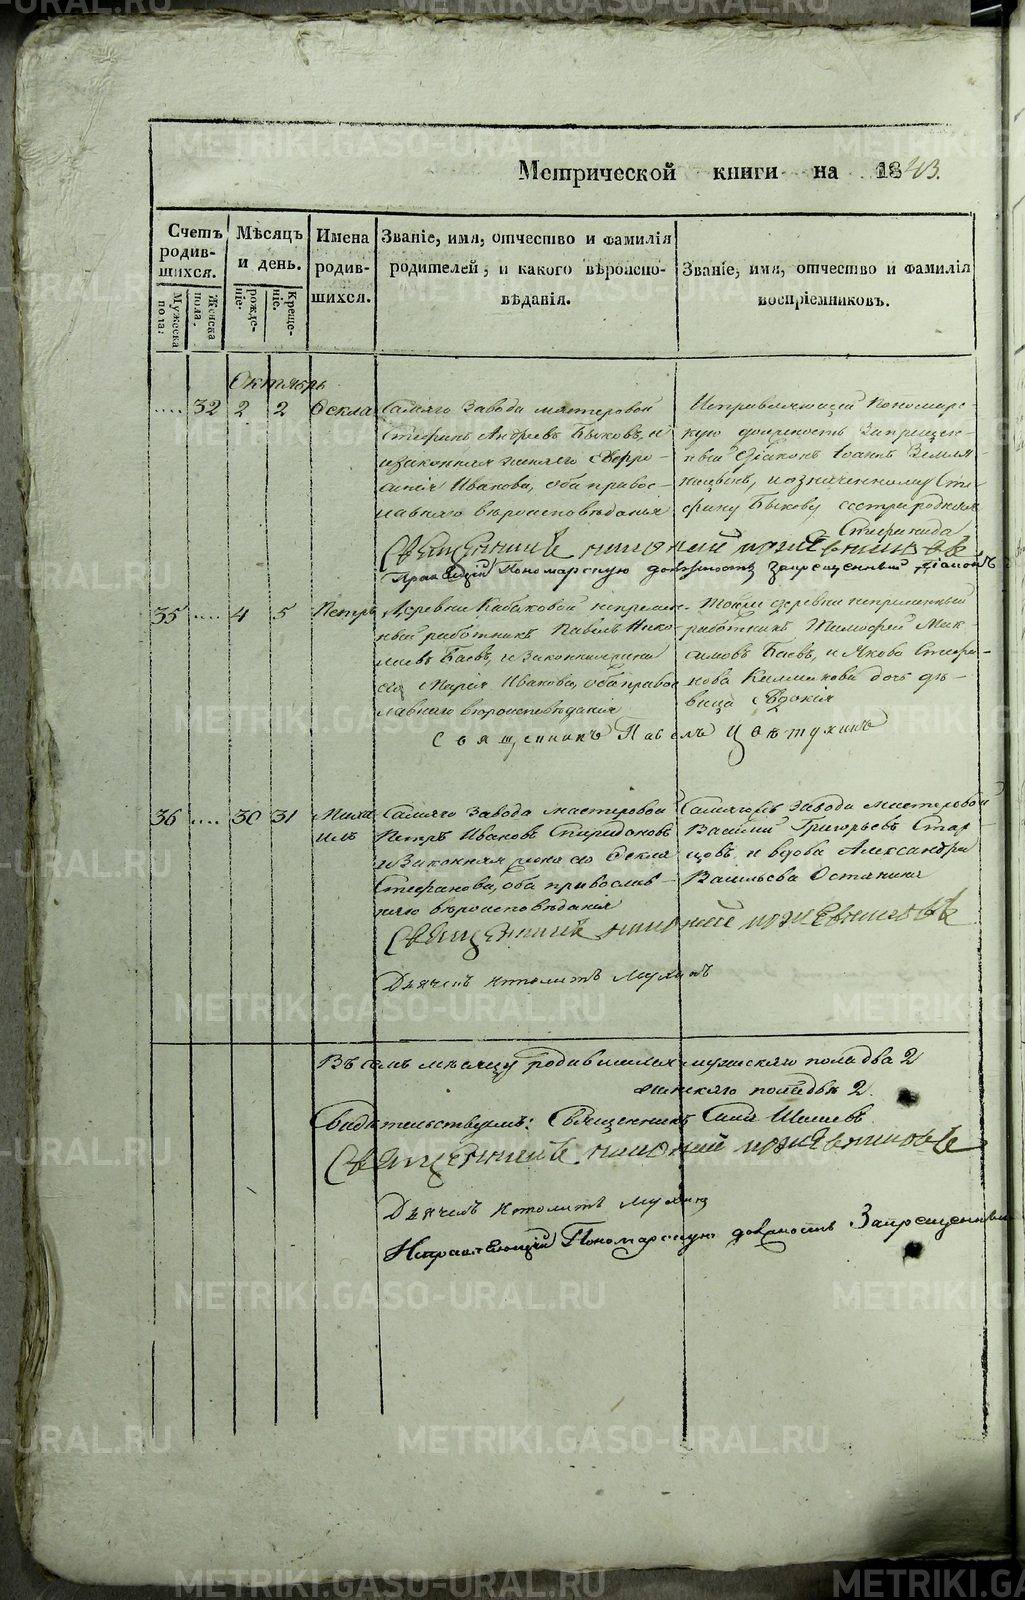 Метрической книги на 1843.
Счетъ родив- шихся.
Мѣсяцъ и день.
Имена родив- шихся.
Званіе, имя, отчество и фамилія родителей, и какого вѣроиспо- вѣданія.
Званіе, имя, отчество и фамилія воспріемниковъ.
Мужеска пола:
Женска пола.
рожде- ніе.
Креще- ніе.
Октябрь
.... 32 2 2 Фекла
Самаго Завода мастеровой
Стефанъ Андреевъ Быковъ, и
законная жена его Евфро-
синія Иванова, оба правос-
лавнаго вѣроисповѣданія
Исправляющій Пономарс-
кую должность Запрещен-
ный Діаконъ Іоаннъ Земля-
ницынъ, и означенному Сте-
фану Быкову сестра родная
Степанида
Священникъ пожевниковъ
Правящій Пономарскую должность Запрещенный діаконъ
35 .... 4 5 Петръ
Деревни Кабаковой непремен-
ный работникъ Павелъ Нико-
лаевъ Баевъ, и Законная жена
его Марія Иванова, оба правос
лавнаго вѣроисповѣданія
Тойже деревни непременный
работникъ Тимофей Мак-
симовъ Баевъ, и Якова Стефа-
нова дочь дѣ-
вица Евдокія
Священникъ Павелъ Цвѣтухинъ
36 .... 30 31 Миха
илъ
Самаго Завода мастеровой
Петръ Ивановъ Спиридоновъ
и Законная жена его Фекла
Стефанова, оба православ-
наго вѣроисповѣданія
Самаго Завода мастеровой
Василій Григорьевъ Стар-
цовъ, и вдова Александра
Васильева Останина
Священникъ пожевниковъ
Дьячекъ Иполитъ Мухинъ
Въ семъ мѣсяцу родившихся мужескаго пола два 2
женскаго пола двѣ 2.
Свидѣтельствуемъ: Священникъ
Священникъ пожевниковъ
Дьячекъ Иполитъ Мухинъ
Исправляющій Пономарскую должность Запрещенный
METRIKI.GASO-URAL.RU